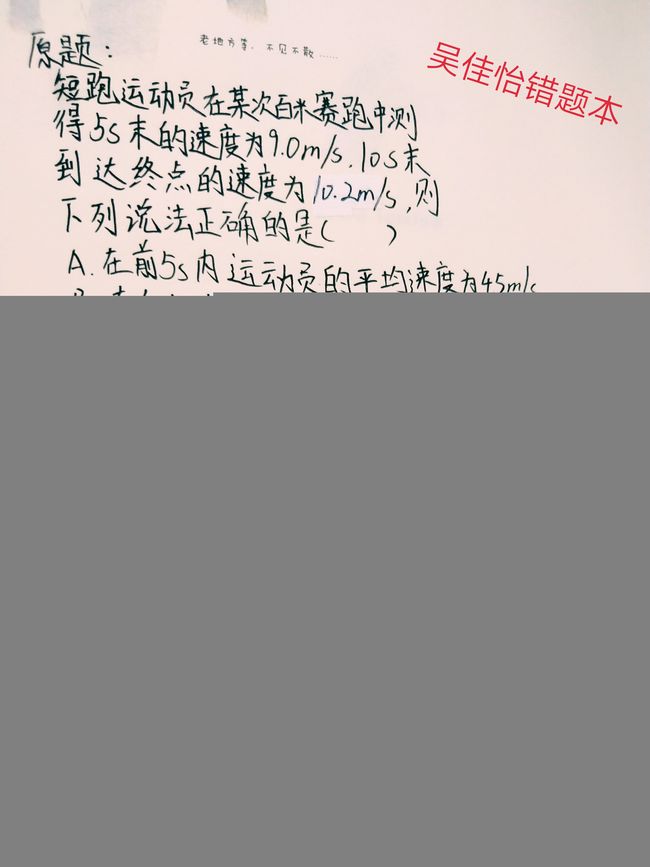 老地方等，不见不散……
吴佳怡错题本
原题：
短跑运动员在某次百米赛跑中测
得5s末的速度为9.0m/s，10s末
到达终点的速度为10.2m/s，则
下列说法正确的是（ ）
A.在前5s内运动员的平均速度为4.5m/s